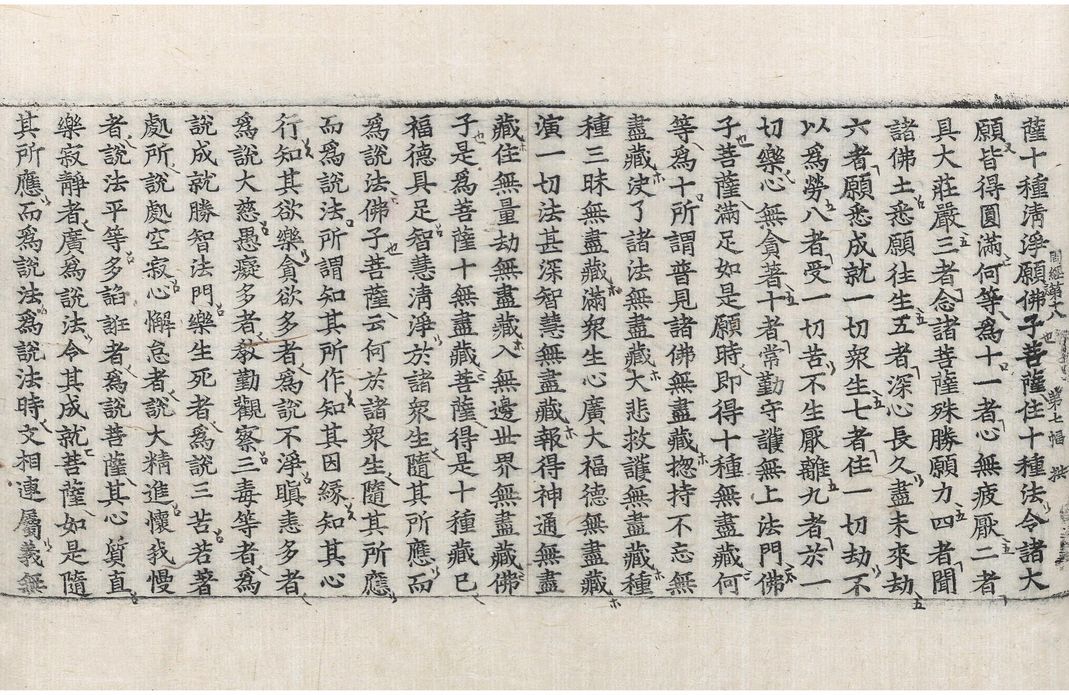 薩十種清淨願佛子菩薩住十種法令諸大
願皆得圓滿何等為十一者心無疲厭二者
具大莊嚴三者念諸菩薩殊勝願力四者聞
諸佛土悉願往生五者深心長久盡未來劫
六者願悉成就一切衆生七者住一切劫不
以為勞八者受一切苦不生厭離九者於一
切樂心無貪著十者常勤守護無上法門佛
子菩薩滿足如是願時即得十種無盡藏何
等為十所謂普見諸佛無盡藏揔持不忘無
盡藏決了諸法無盡藏大悲救護無盡藏種
種三昧無盡藏滿衆生心廣大福德無盡藏
演一切法甚深智慧無盡藏報得神通無盡
藏住無量劫無盡藏入無邊世界無盡藏佛
子是為菩薩十無盡藏菩薩得是十種藏已
福德具足智慧清淨於諸衆生隨其所應而
為說法佛子菩薩云何於諸衆生隨其所應
而為說法所謂知其所作知其因緣知其心
行知其欲樂貪欲多者為說不淨瞋恚多者
為說大慈愚癡多者教勤觀察三毒等者為
說成就勝智法門樂生死者為說三苦若著
處所說處空寂心懈怠者說大精進懷我慢
者說法平等多諂誑者為說菩薩其心質直
樂寂靜者廣為說法令其成就菩薩如是隨
其所應而為說法為說法時文相連屬義無